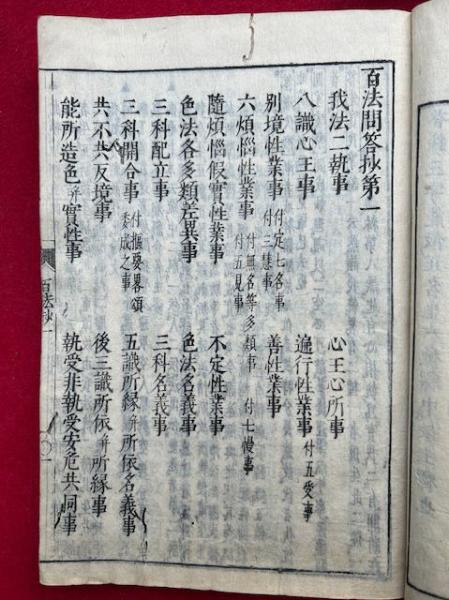 百法問答抄第一
我法二執事　心王心所事
八識心王事　遍行性業事 付五受事
別境性業事 付定七名事 付三慧事　善性業事
六煩惱性業事 付無名等多類事 付五見事 付七慢事
隨煩惱假實性業事　不定性業事
色法各多類差異事　色法名義事
三科配立事　三科名義事
三科開合事 付樞要畧頌 委成之事　五識所縁并所依名義事
共不共反境事　後三識所依并所縁事
能所造色并實性事　執受非執受安危共同事
百法抄一